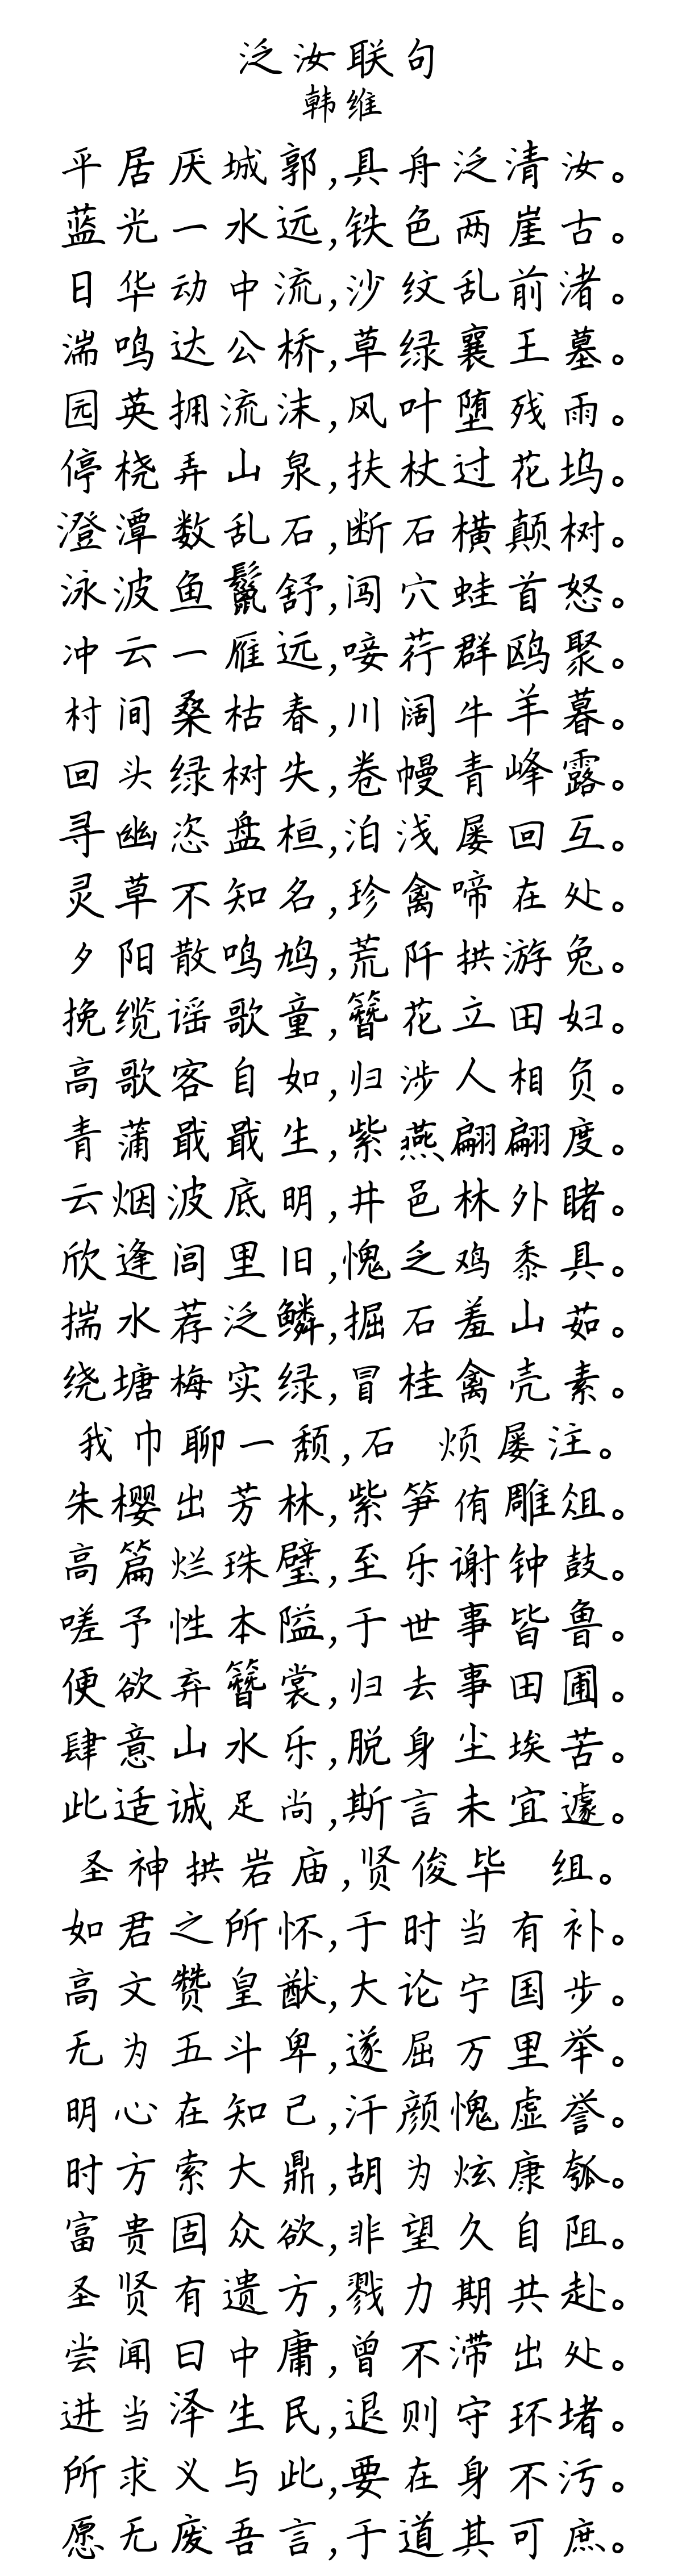 泛汝联句
韩维
平居厌城郭,具舟泛清汝。
蓝光一水远,铁色两崖古。
日华动中流,沙纹乱前渚。
湍鸣达公桥,草绿襄王墓。
园英拥流沫,风叶堕残雨。
停桡弄山泉,扶杖过花坞。
澄潭数乱石,断石横颠树。
泳波鱼鬣舒,闯穴蛙首怒。
冲云一雁远,唼荇群鸥聚。
村间桑枯春,川阔牛羊暮。
回头绿树失,卷幔青峰露。
寻幽恣盘桓,泊浅屡回互。
灵草不知名,珍禽啼在处。
夕阳散鸣鸠,荒阡拱游兔。
挽缆谣歌童,簪花立田妇。
高歌客自如,归涉人相负。
青蒲戢戢生,紫燕翩翩度。
云烟波底明,井邑林外睹。
欣逢闾里旧,愧乏鸡黍具。
揣水荐泛鳞,掘石羞山茹。
绕塘梅实绿,冒桂禽壳素。
我巾聊一颓,石 烦屡注。
朱樱出芳林,紫笋侑雕俎。
高篇烂珠璧,至乐谢钟鼓。
嗟予性本隘,于世事皆鲁。
便欲弃簪裳,归去事田圃。
肆意山水乐,脱身尘埃苦。
此适诚足尚,斯言未宜遽。
圣神拱岩庙,贤俊毕 组。
如君之所怀,于时当有补。
高文赞皇猷,大论宁国步。
无为五斗卑,遂屈万里举。
明心在知己,汗颜愧虚誉。
时方索大鼎,胡为炫康瓠。
富贵固众欲,非望久自阻。
圣贤有遗方,戮力期共赴。
尝闻曰中庸,曾不滞出处。
进当泽生民,退则守环堵。
所求义与此,要在身不污。
愿无废吾言,于道其可庶。